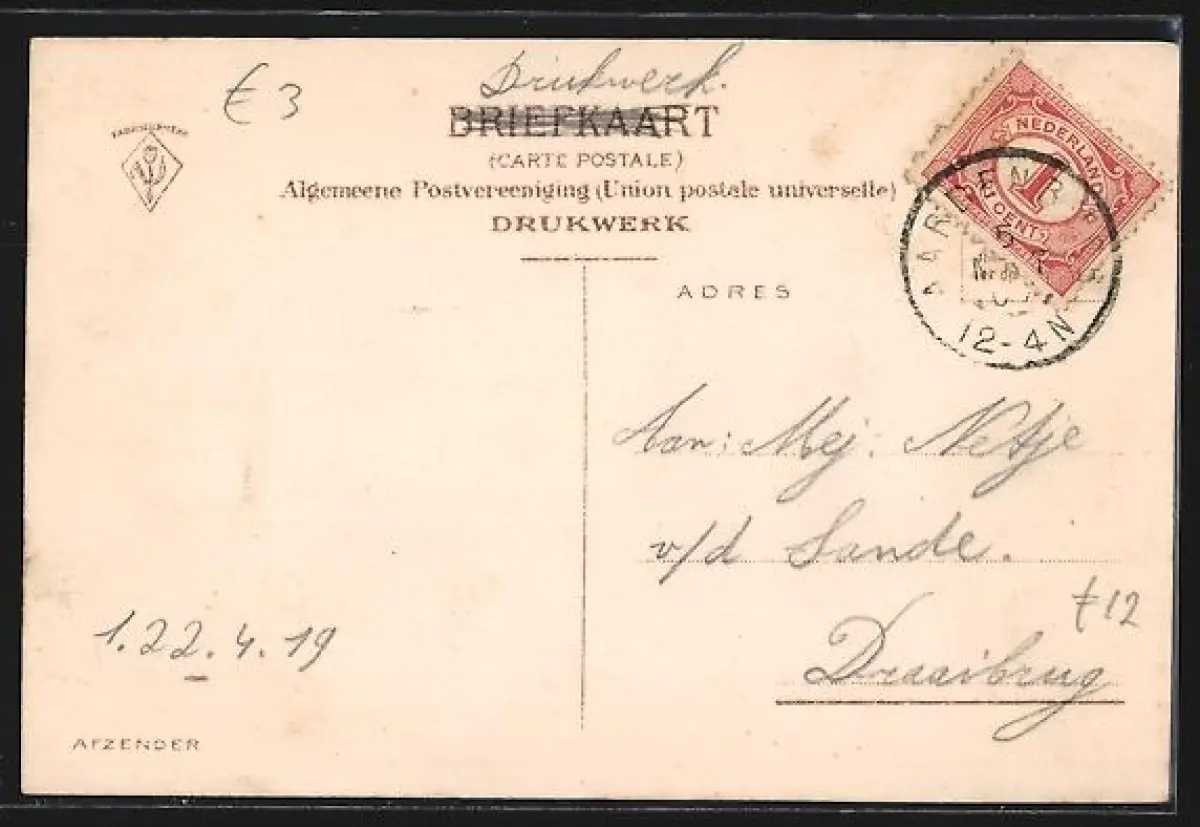 € 3
Drukwerk.
BRIEFKAART
(CARTE POSTALE)
Algemeene Postvereeniging (Union postale universelle)
DRUKWERK
ADRES
NEDERLAND
1
CENT
12-4N
Aan: Mej: Netje
v/d Sande.
Draaibrug
t12
1.22.4.19
AFZENDER